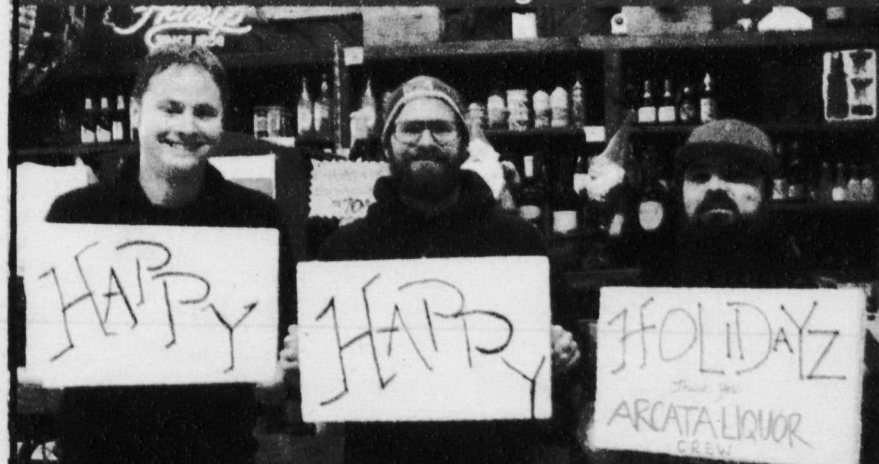 HAPPY
HAPPY
HOLIDAYZ
Thank You
ARCATA LIQUOR
CREW